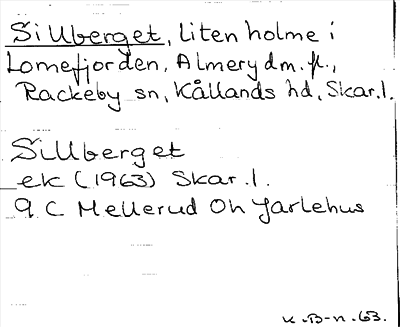 Silluberget, Liten holme i
Lomefjorden, Almery dm. fl.,
Rackeby sn, Kållands hd, Skar.l.
Sillberget
ek (1963) Skar.l.
9 C Mellerud Oh Jarlehus
K.B-n.63.